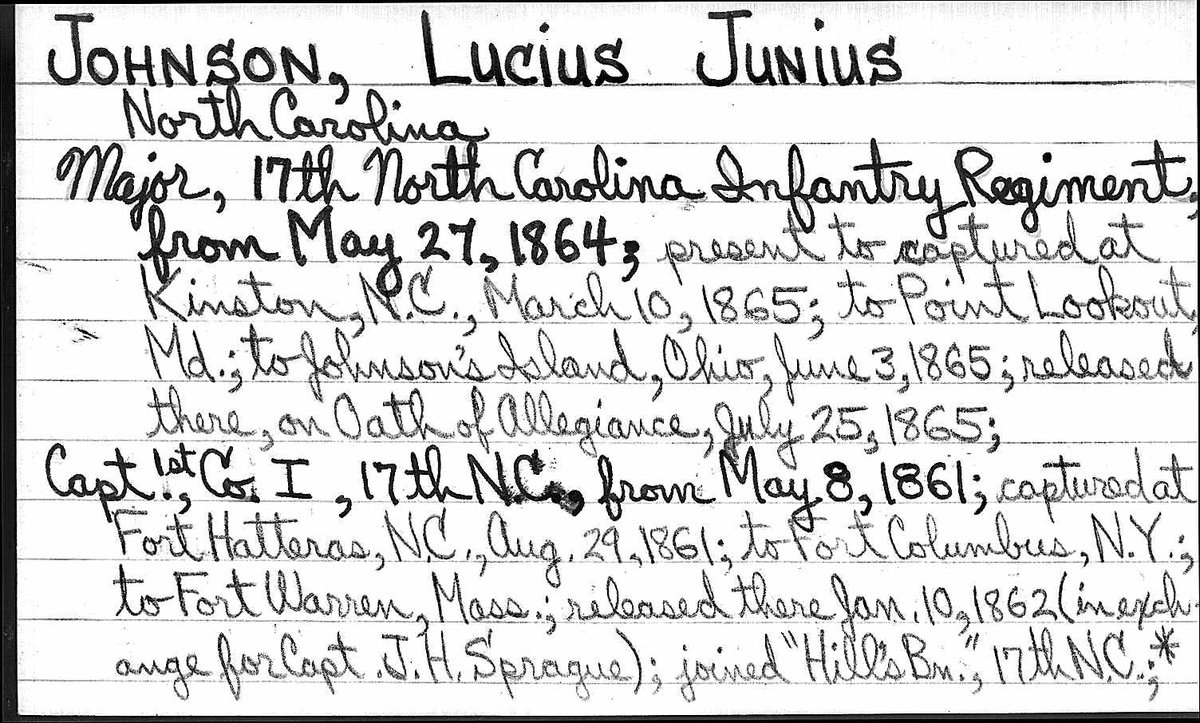 JOHNSON, LUCIUS JUNIUS
North Carolina
Major, 17th North Carolina Infantry Regiment,
from May 27, 1864; present to captured at
Kinston, N.C., March 10, 1865; to Point Lookout,
Md.; to Johnson's Island, Ohio, June 3, 1865; released
there, on Oath of Allegiance, July 25, 1865;
Capt., 1st Co. I, 17th N.C., from May 8, 1861; captured at
Fort Hatteras, N.C., Aug. 29, 1861; to Fort Columbus, N.Y.;
to Fort Warren, Mass.; released there Jan. 10, 1862 (in exch-
ange for Capt. J.H. Sprague); joined "Hill's Bn.", 17th N.C.;*